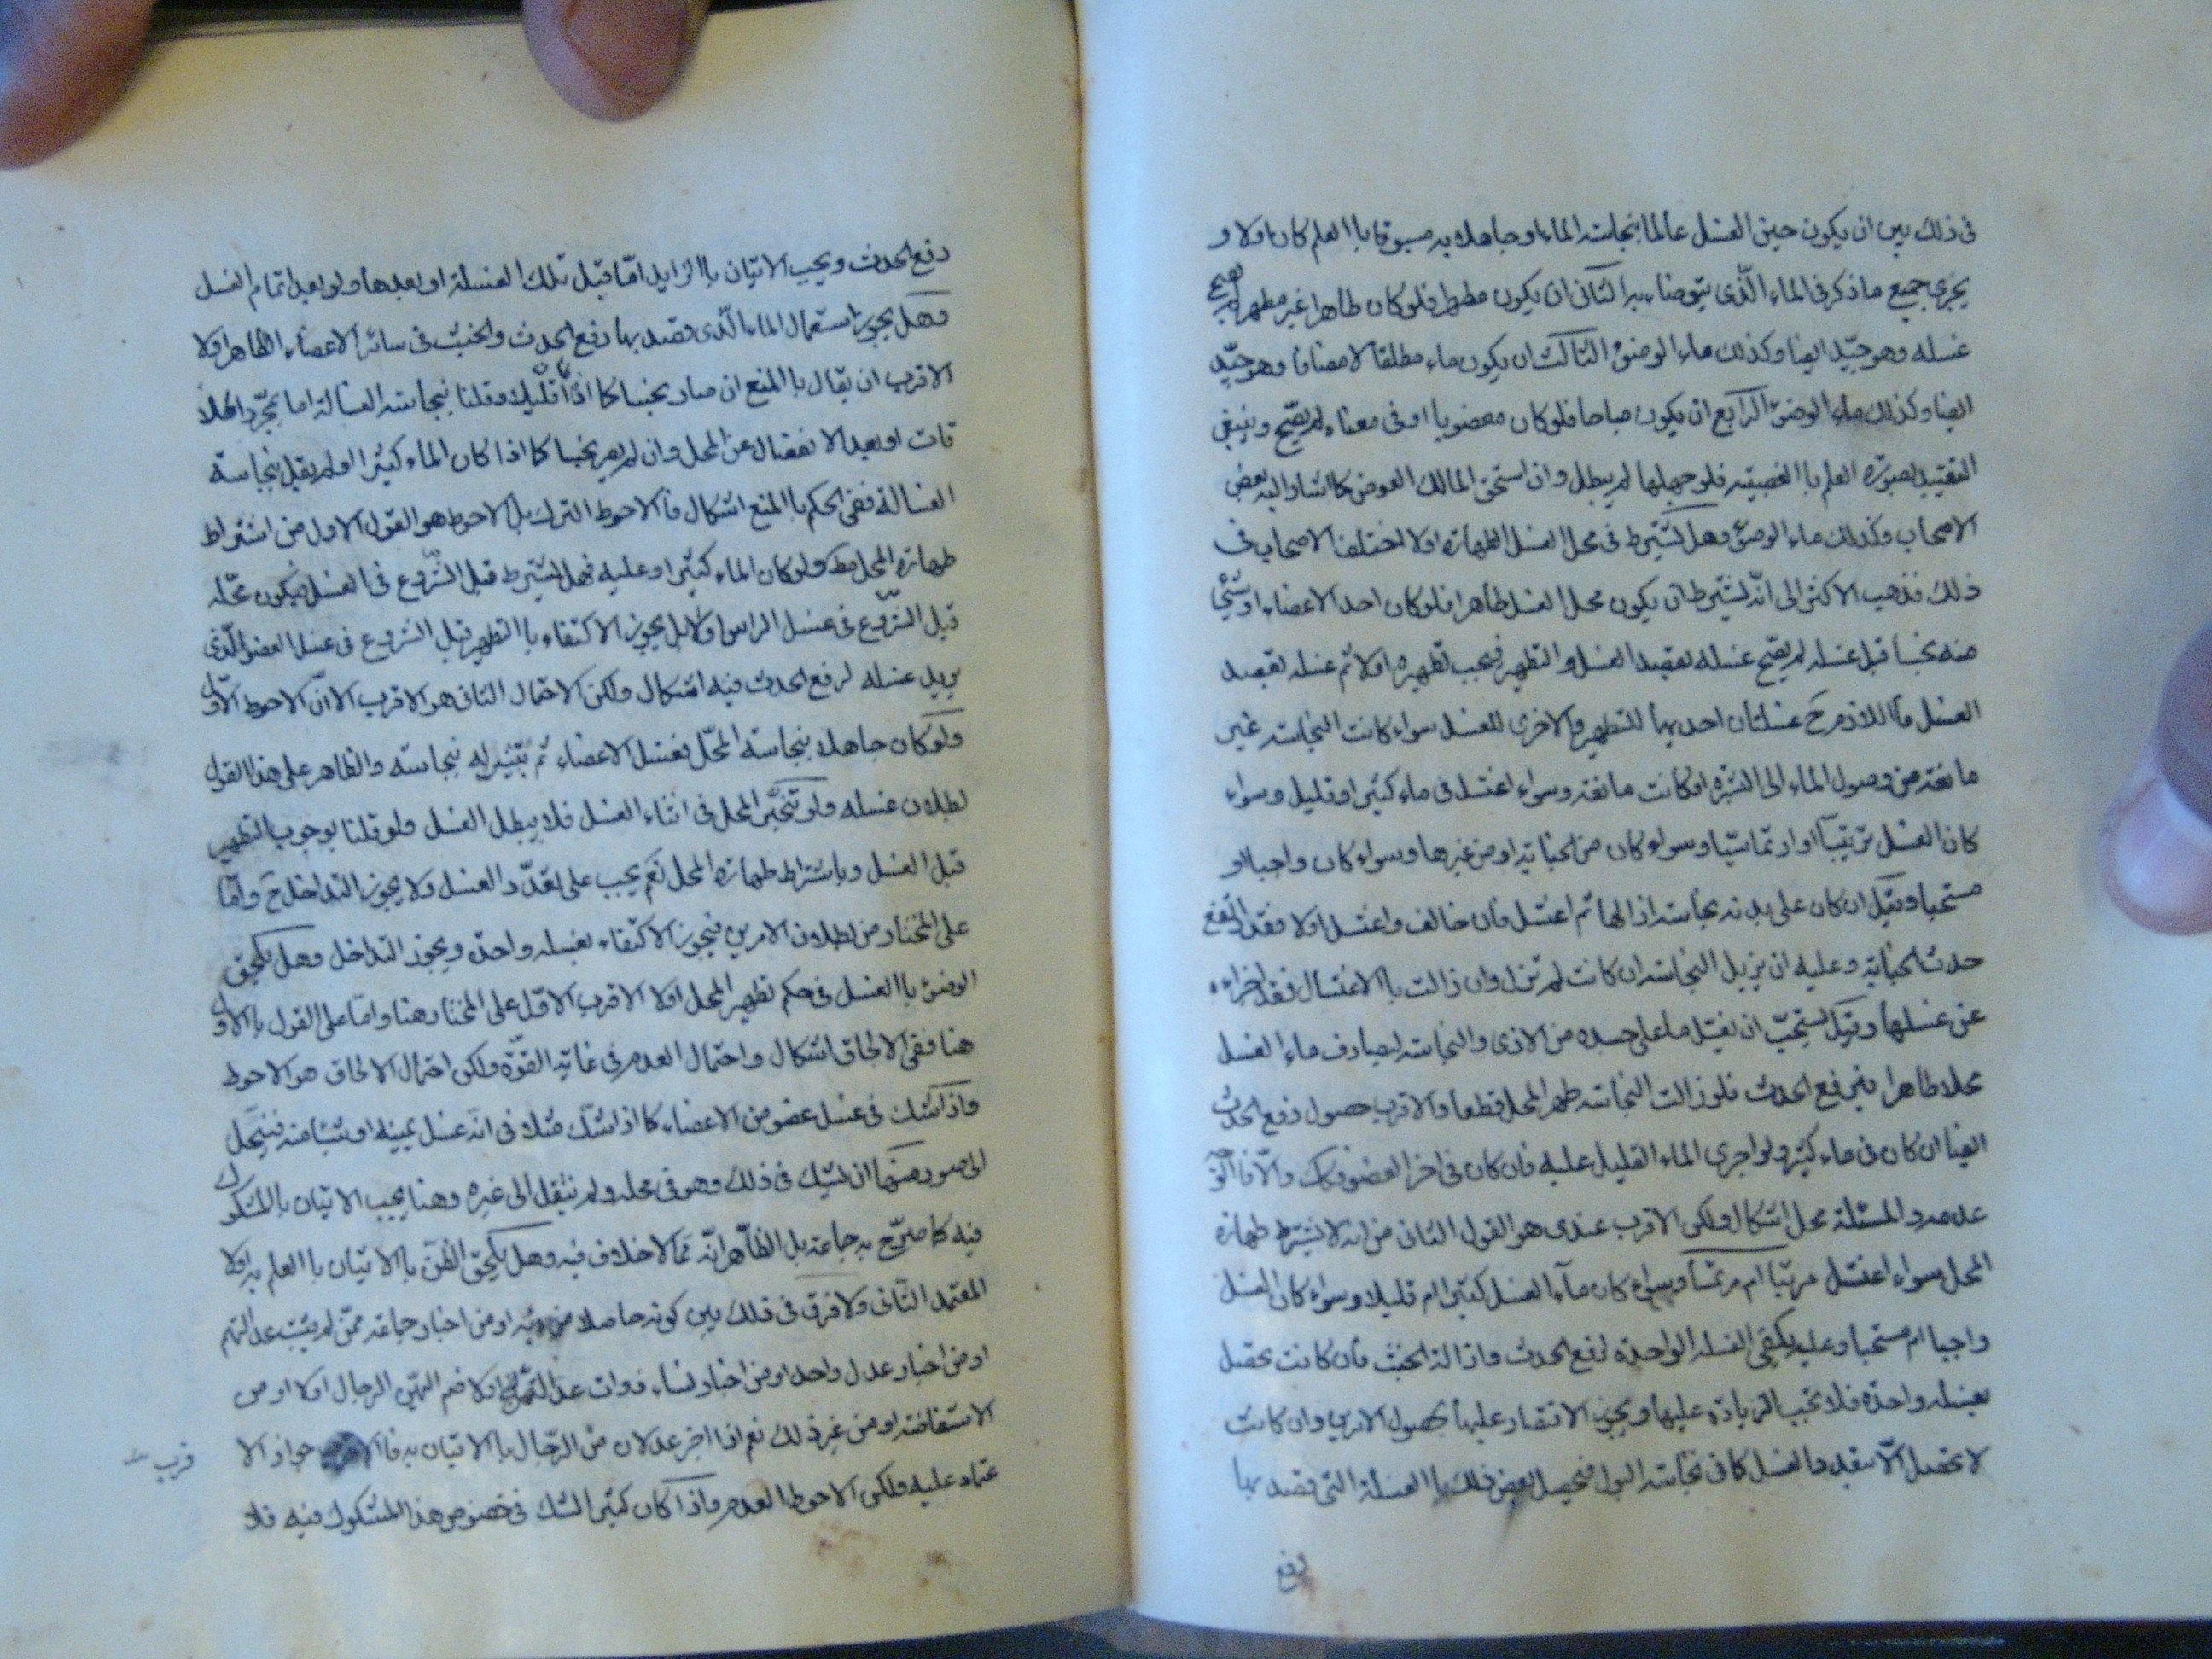 فى ذلك بين ان يكون حين الغسل عالما بنجاسته الماء او جاهلا به مسبوقا باالعلم كان اولا و
يجرى جميع ما ذكر فى الماء الّذى يتوضاء به الثّانى ان يكون مطهرا فلو كان طاهرا غير مطهر لم يصح
غسله وهو جيّد ايضا وكذلك ماء الوضوء الثالث ان يكون ماء مطلقا لا مضافا وهو جيّد
ايضا وكذلك ماء الوضوء الرّابع ان يكون مباحا فلو كان مغصوبا او فى معناه لم يصّح وينبغى
التقييد بصورة العلم باالغصبيته فلو جهلها لم يبطل وان استحق المالك العوض كا اشار اليه بعض
الاصحاب وكذلك ماء الوضوء وهل يشترط فى محل الغسل الطهارة اولا اختلف الاصحاب فى
ذلك فذهب الاكثر الى انّه يشترط ان يكون محل الغسل طاهرا فلو كان احد الاعضاء او شئ
منه نجسا قبل غسله لم يصّح غسله بقصد الغسل والتطهير فيجب تطهيره اولا ثم غسله بقصد
الغسل فأللازم ح غسلتان احديهما للتطهير والاخرى للغسل سواء كانت النجاسته غير
مانعة من وصول الماء الى البشرة او كانت مانعة وسواء اغتسل فى ماء كثير او قليل وسواء
كان الغسل ترتيبيّا او ارتماسيّا وسواء كان من الجنابة او من غيرها وسواء كان واجبا او
مستحبا وقيل ان كان على بدنه نجاسته ازالها ثم اغتسل فأن خالف واغتسل اولا فقد ارتفع
حدث الجنابة وعليه ان يزيل النجاسته ان كانت لم تزل وان زالت باالاغتسال فقد اجزاءه
عن غسلها وقيل يستحبّ ان يغسل ما على جسده من الاذى والنجاسته ليصادف ماء الغسل
محلا طاهرا فيرفع الحدث فلو زالت النجاسته طهر المحل قطعا والاقرب حصول رفع الحدث
ايضا ان كان فى ماء كثير ولو اجرى الماء القليل عليه فأن كان فى اخر العضو فكك والّا فالاقوى
عدمه والمسئلة محل اشكال ولكن الاقرب عندى هو القول الثانى من انه لا يشترط طهارة
المحل سواء اغتسل مرتبا ام مرتمسا وسواء كان مآء الغسل كثيرا ام قليلا وسواء كان الغسل
واجبا ام مستحبا وعليه يكفى الغسلة الواحدة لرفع الحدث وازالة الخبث فأن كانت تحصل
بغسلة واحدة فلا تجب الزيادة عليها ويجوز الاقتصار عليها لحصول الامرين وان كانت
لا تحصل الّا بتعدد الغسل كا فى نجاسته البول فيحصل بعض ذلك باالغسلة التى قصد بها
رفع
رفع الحدث ويجب الاتيان باالزايد امّا قبل تلك الغسلة او بعدها ولو بعد اتمام الغسل
وهل يجوز استعمال الماء الّذى قصد بها رفع الحدث والخبث فى سائر الاعضاء الظاهر اولا
الاقرب ان يقال باالمنع ان صار نجسا كا اذا كان قليلا وقلنا بنجاسته الغسالة اما بمجرّد الملا
قات او بعد الانفصال عن المحل وان لم يصر نجسا كا اذا كان الماء كثيرا او لم يقل بنجاسة
الغسالة ففى الحكم باالمنع اشكال فأ لاحوط الترك بل الاحوط هو القول الاول من اشتراط
طهارة المحل مط ولو كان الماء كثيرا وعليه فهل يشترط قبل الشّروع فى الغسل فيكون محّله
قبل الشّروع فى غسل الراس اولا بل يجوز الاكتفاء باالتطهير قبل الشروع فى غسل العضو الّذى
يريد غسله لرفع الحدث فيه اشكال ولكن الاحتمال الثانى هو الاقرب الّا انّ الاحوط الاوّل
ولو كان جاهلا بنجاسته المحّل فغسل الاعضاء ثم تبيّن له نجاسته والظاهر على هذا القول
بطلان غسله ولو تنجّس المحل فى اثناء الغسل فلا يبطل الغسل ولو قلنا بوجوب التطهير
قبل الغسل وباشتراط طهارة المحل نعم يجب على تعدّد الغسل ولا يجوز التداخل ح وامّا
على المختار من بطلان الامرين فيجوز الاكتفاء بغسلة واحدة ويجوز التداخل وهل يلحق
الوضوء باالغسل فى حكم تطهير المحل اولا الاقرب الاوّل على المختار هنا وامّا على القول باالاول
هنا ففى الالحاق اشكال واحتمال العدم فى غاية القوّة ولكن احتمال الالحاق هو الاحوط
واذا شك فى غسل عضو من الاعضاء كا اذا شكّ مثلا فى انّه غسل يمينه او شيئا منه فينحّل
الى صور منها ان يشك فى ذلك وهو فى محله ولم ينتقل الى غيره وهنا يجب الاتيان باالمشكوك
فيه كا صرّح به جماعة بل الظّاهر انّه ممّا لا خلاف فيه وهل يلحق الظّن باالاتيان باالعلم به اولا
المعتمد الثّانى ولا فرق فى ذلك بين كونه حاصلا من او من اخبار جماعة ممّن لم يثبت عدالتهم
او من اخبار عدل واحد او من اخبار نساء ذوات عدالة اولا فهم الرجال اولا او من
الاستفاضة او من غير ذلك نعم اذا اخبر عدلان من الرّجال باالاتيان به فأ الاقرب جواز الا
عتماد عليه ولكن الاحوط العدم واذا كان كثير الشك فى خصوص هذا المشكوك فيه فلا
قرب